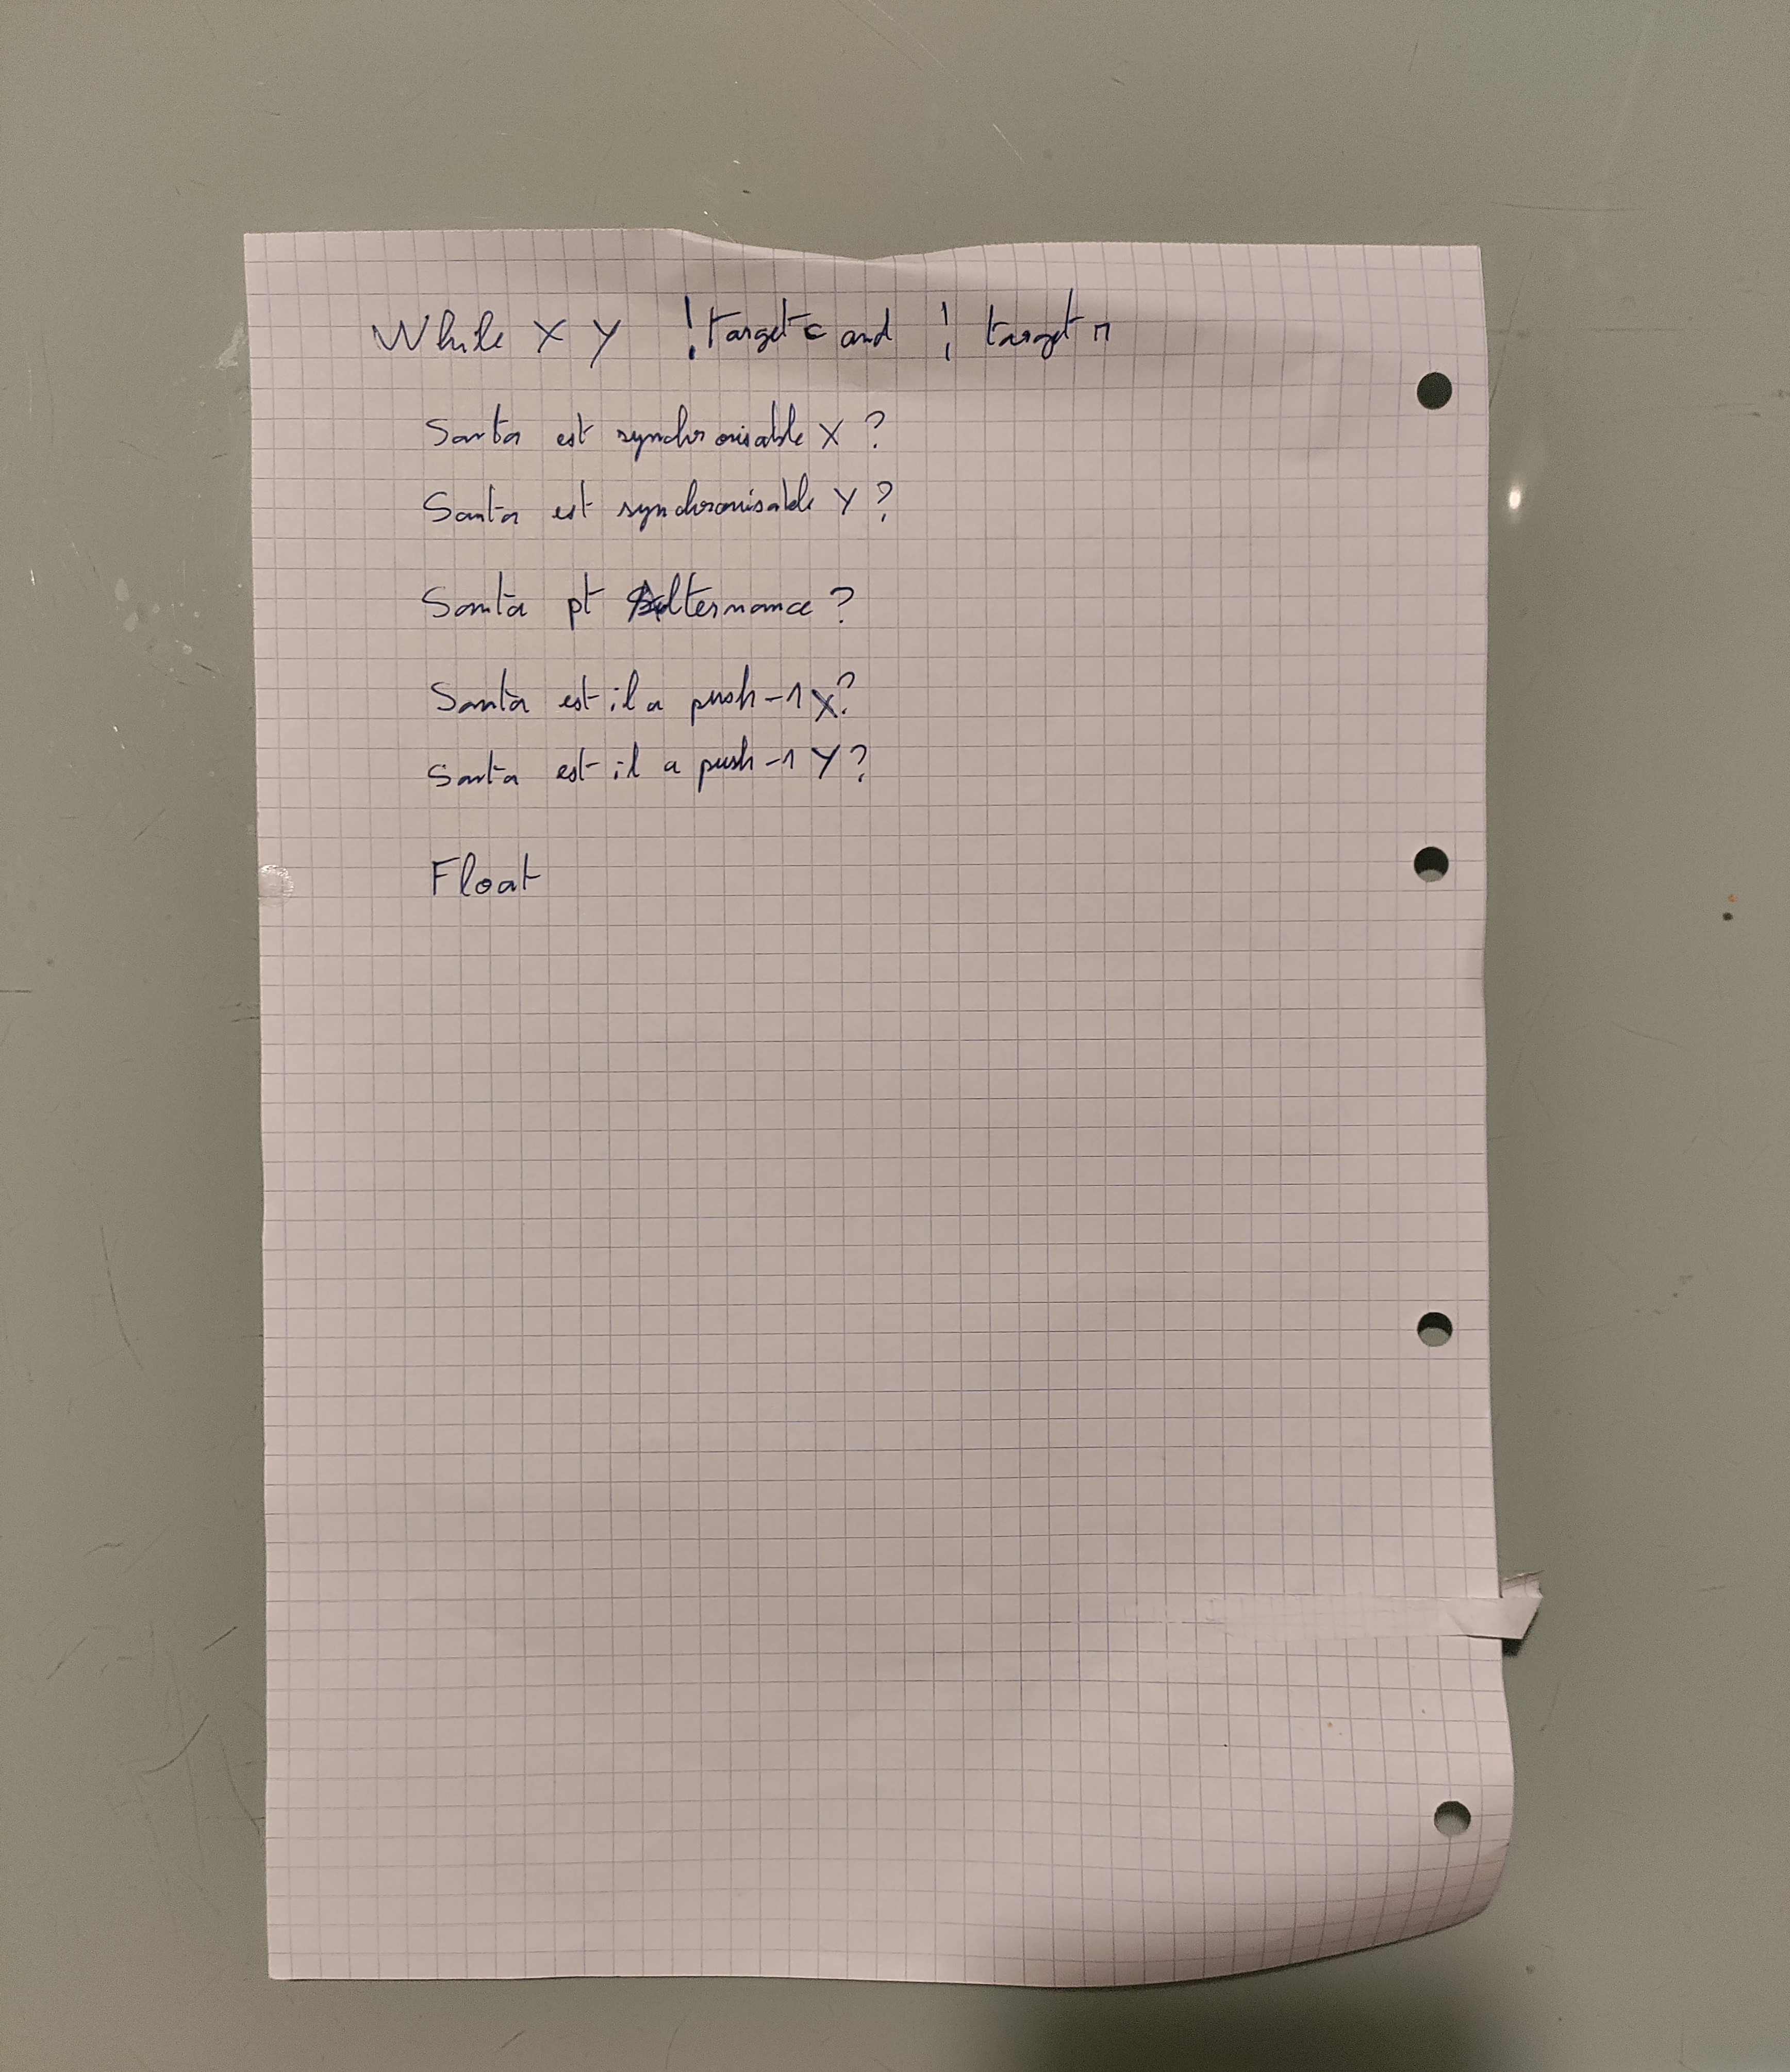 While X Y ! target c and ! target n
Santa est synchronisable X ?
Santa est synchronisable Y ?
Santa pt Alternance ?
Santa est-il a push-1 X ?
Santa est-il a push-1 Y ?
Float